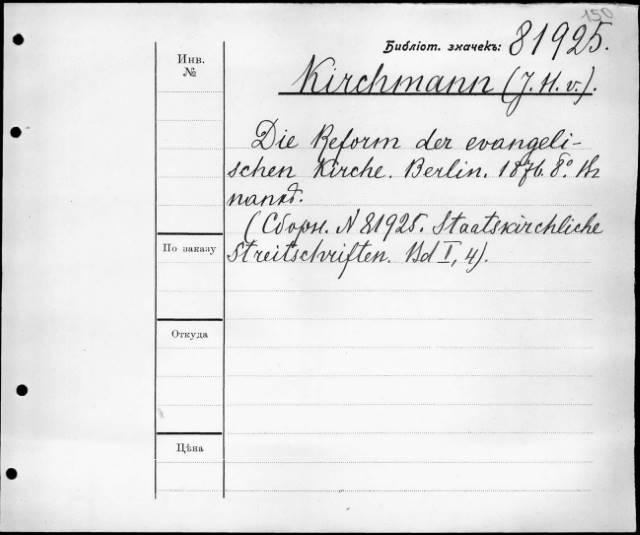 150
Библіот. значекъ: 81925.
Инв.
№
Kirchmann (J. H. v.).
Die Reform der evangeli-
schen Kirche. Berlin. 1876. 8° Въ
папкѣ.
(Сборн. N 81925. Staatskirchliche
Streitschriften. Bd I, 4).
По заказу
Откуда
Цѣна